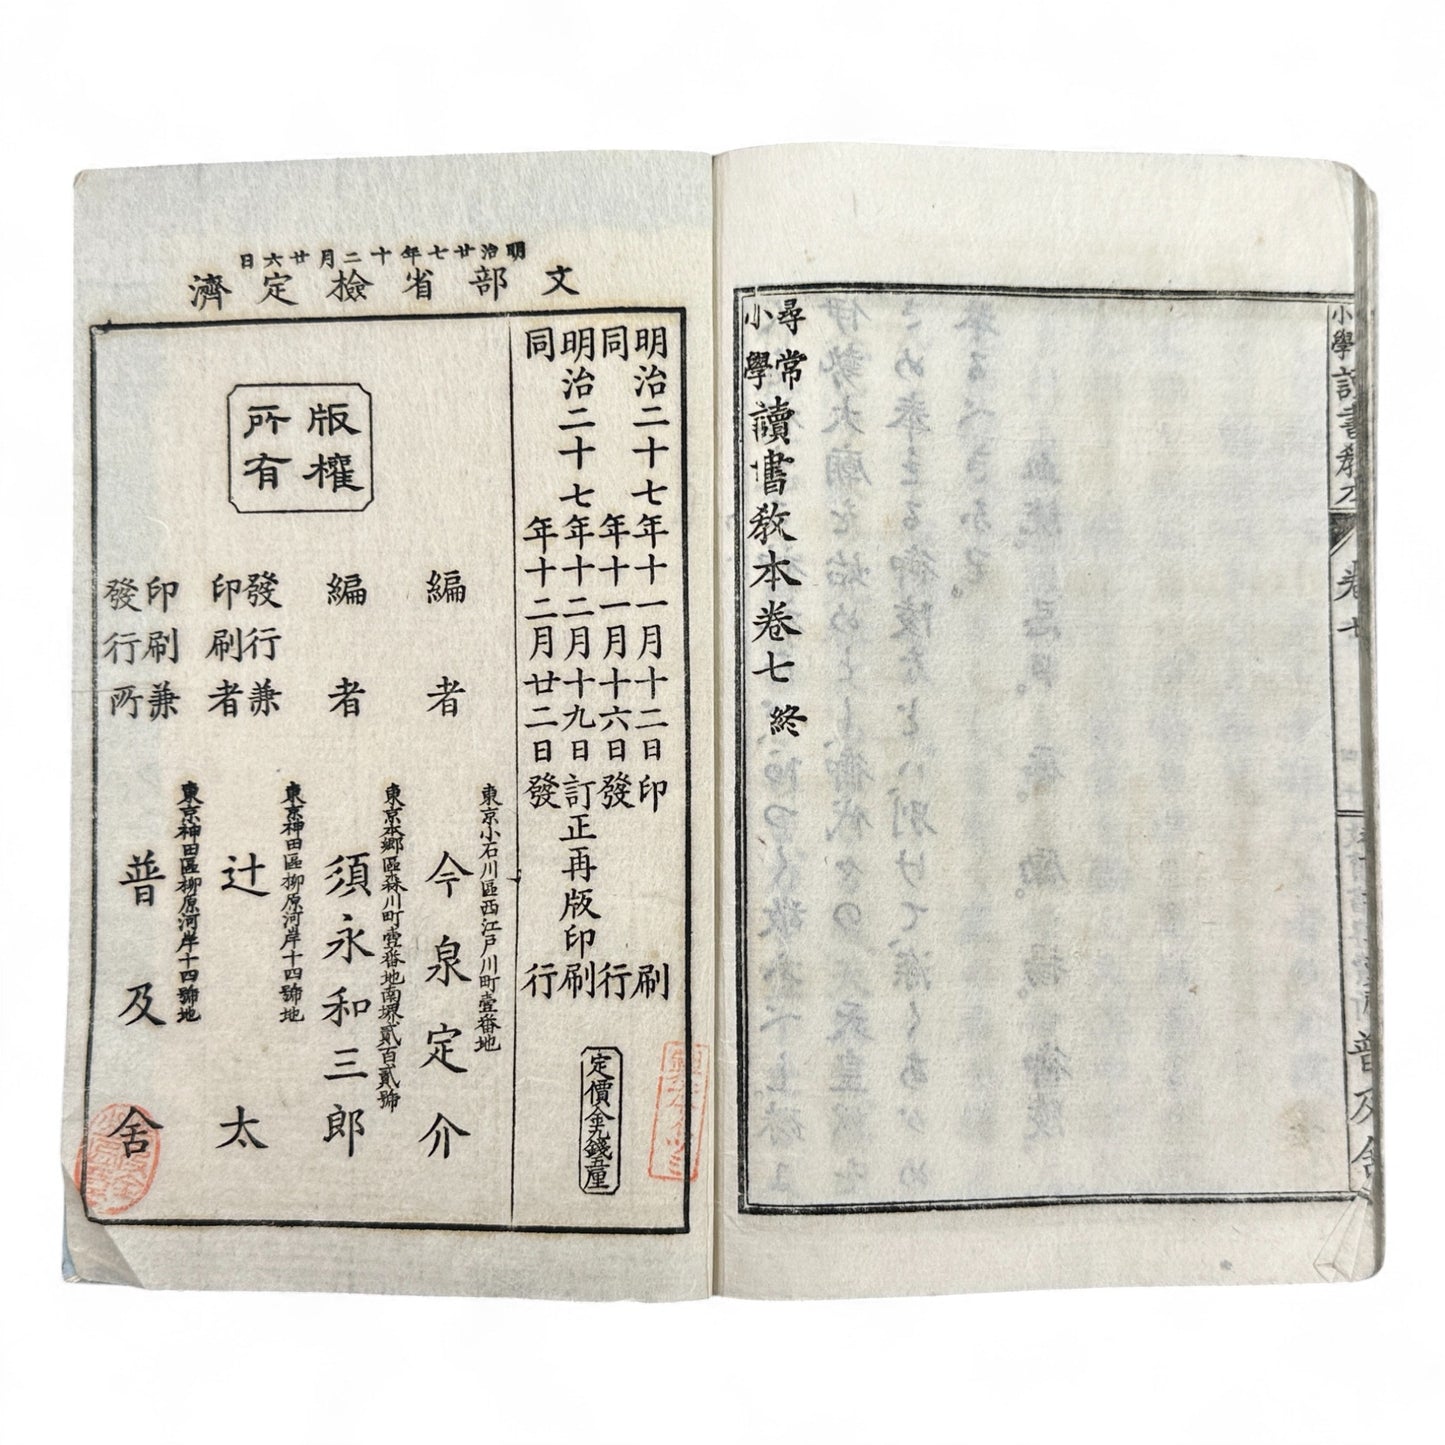 小學讀書教本
卷七
普及舍
尋常
小學
讀書敎本卷七 終
明治廿七年十二月廿六日
文部省檢定濟
明治二十七年十一月十二日印刷
同年十一月十六日發行
明治二十七年十二月十九日訂正再版印刷
同年十二月廿二日發行
定價金九錢五厘
版權所有
東京小石川區西江戸川町壹番地
編者 今泉定介
東京本郷區森川町壹番地南堺貳百貳號
編者 須永和三郎
東京神田區柳原河岸十四號地
發行兼印刷者 辻太
東京神田區柳原河岸十四號地
印刷兼發行所 普及舍